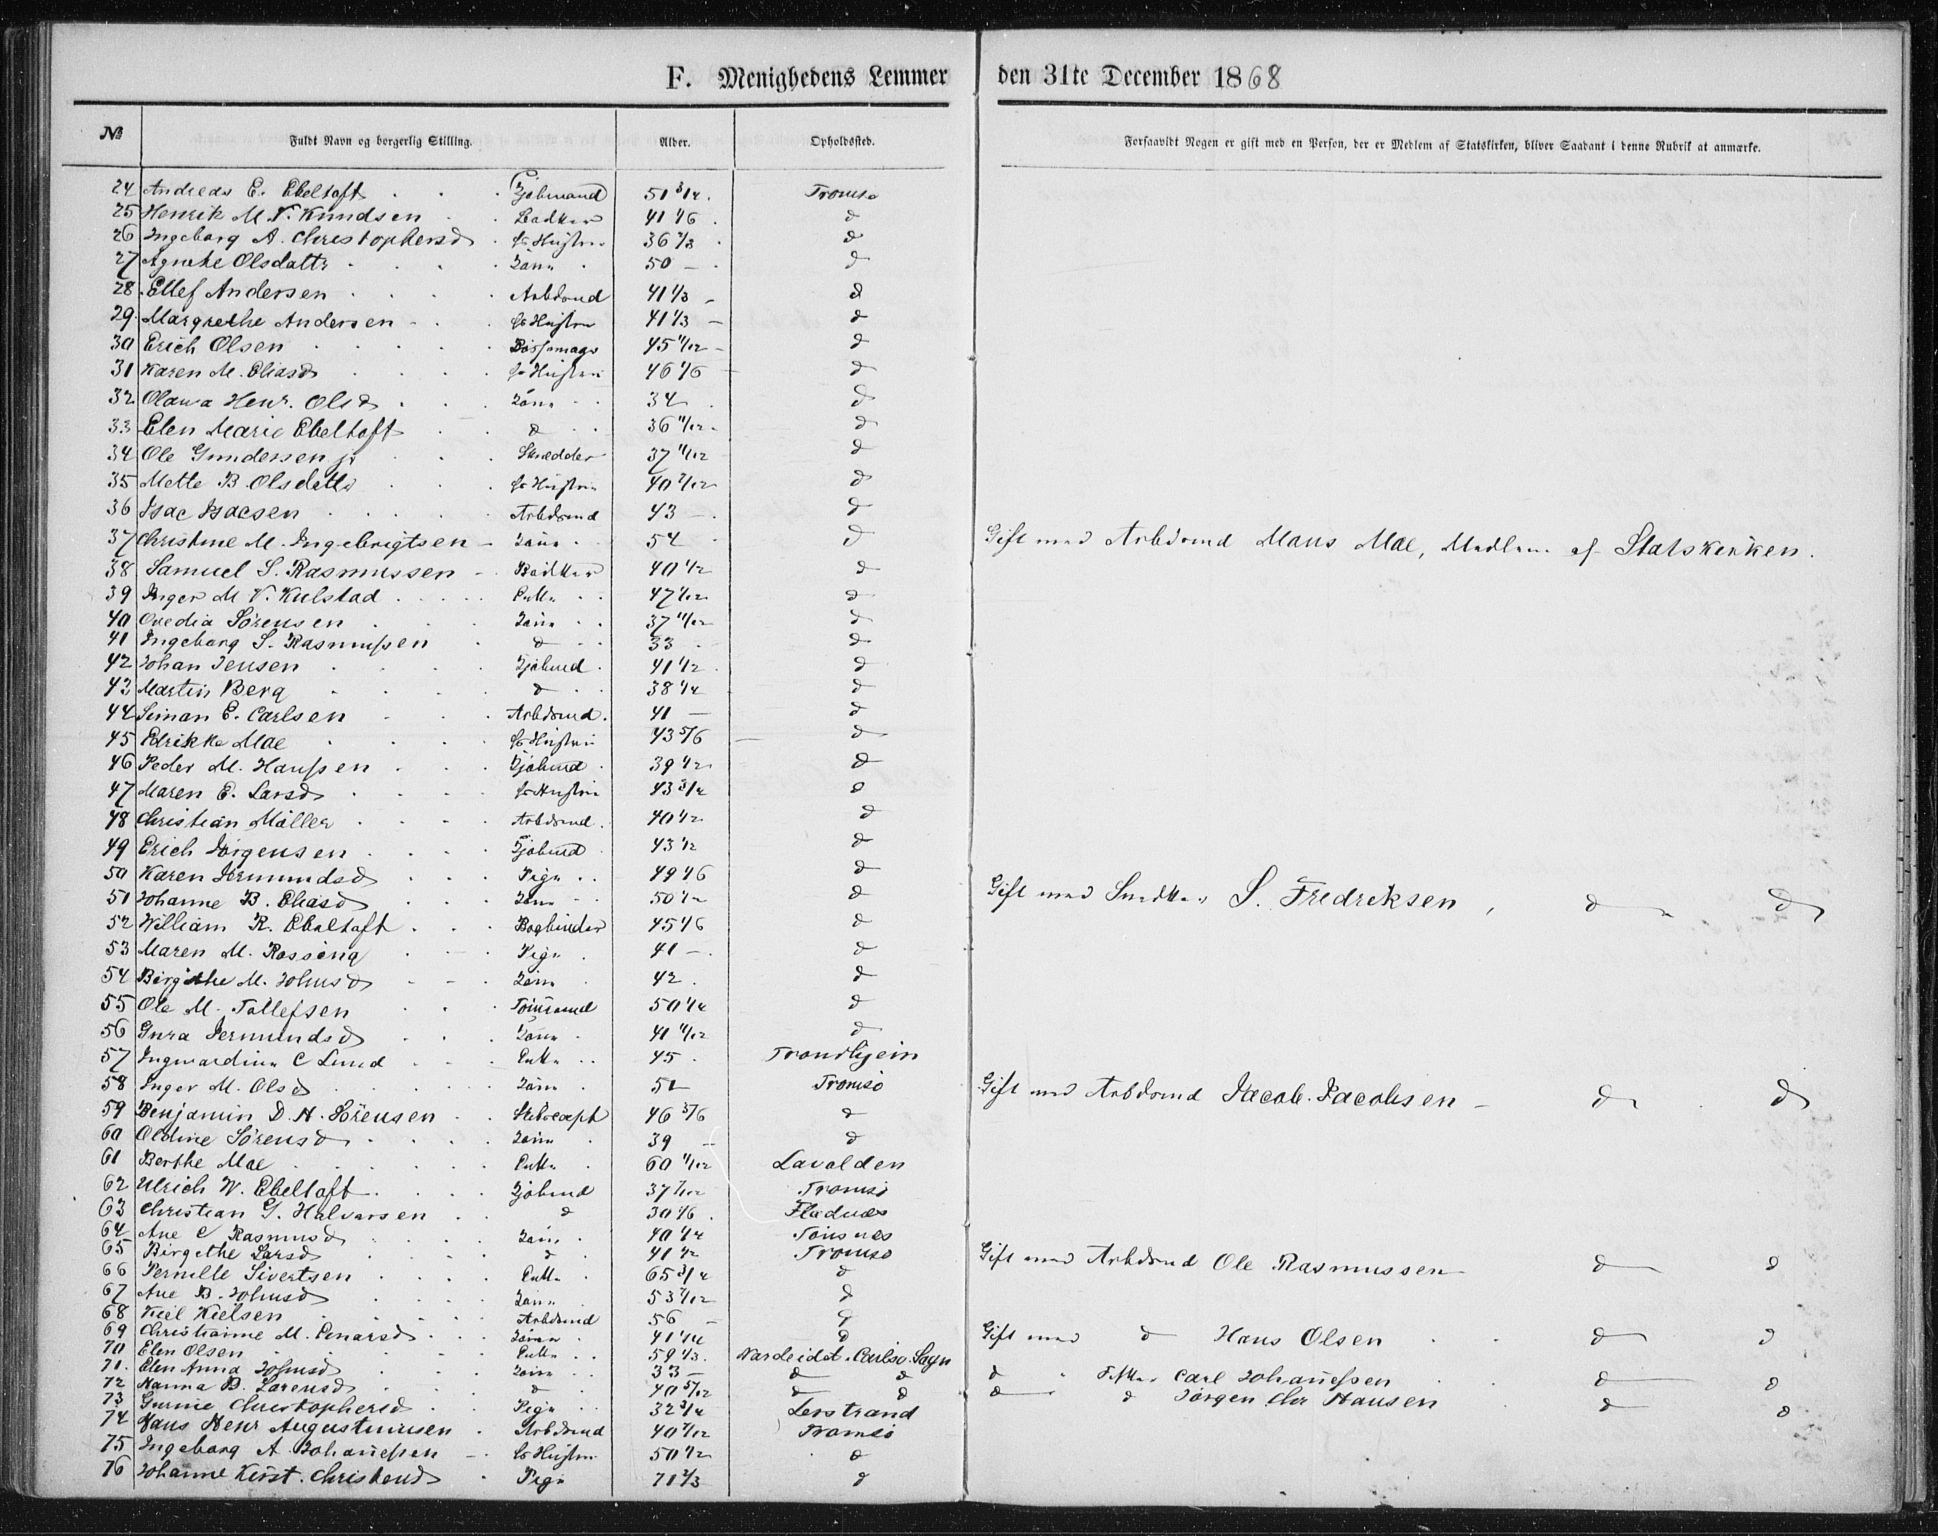 F. Menighedens Lemmer den 31te December 1868
№ Fuldt Navn og borgerlig Stilling. Alder. Opholdssted. Forsaavidt Nogen er gift med en Person, der er Medlem af Statskirken, bliver Saadant i denne Rubrik at anmærke.
24 Andreas E. Ebeltoft Sjøbmand 51 3/4. Tromsø
25 Henrik M. V. Knudsen 41 1/6 d
26 Ingeborg A. Christophersd Hustru 36 2/3 d
27 Agnethe Olsdattr 50 d
28 Ellef Andersen Arbdsmd 41 1/3 d
29 Margrethe Andersen Hustru 41 1/3 d
30 Erich Olsen Bøssemagr 45 11/12 d
31 Karen M. Eliasd Hustru 46 1/6 d
32 Olava Henr. Olsd 34 d
33 Elen Marie Ebeltoft d 36 11/12 d
34 Ole Gundersen jr Skrædder 37 11/12 d
35 Mette B. Olsdattr Hustru 40 7/12 d
36 Isac Isacsen Arbdsmd 43 d
37 Christine M. Ingebrigtsen 54 d Gift med Arbdsmd Mons Moe, Medlem af Statskirken.
38 Samuel S. Rasmussen Bødker 40 1/2 d
39 Inger M V. Kulstad Enke 47 1/12 d
40 Ovedia Sørensen 37 11/12 d
41 Ingeborg S. Rasmussen d 33 d
42 Johan Jensen Sjøbmd 41 1/2 d
43 Martin Berg d 38 1/4 d
44 Simon E. Carlsen Arbdsmd. 41 d
45 Edrikke Moe Hustru 43 5/6 d
46 Peder M. Hanssen Sjøbmd 39 1/2 d
47 Maren E. Larsd Hustru 43 3/4 d
48 Christian Møller Arbdsmd. 40 1/2 d
49 Erich Jørgensen Sjøbmd 43 1/2 d
50 Karen Jermundsd Pige 49 1/6 d
51 Johanne B. Eliasd 50 1/2 d Gift med Snedker S. Fredriksen, d d
52 William R. Ebeltoft Bogbinder 45 1/6 d
53 Maren M. Røssing Pige 41 d
54 Birgithe M. Johnsd 42 d
55 Ole M. Tollefsen 50 1/4 d
56 Gura Jermundsd 41 11/12 d
57 Ingvardine C Lund Enke 45 Trondhjem
58 Inger M. Olsd 51 Tromsø Gift med Arbdsmd Jacob Jacobsen d d
59 Benjamin D. H. Sørensen 46 5/6 d
60 Oldine Sørensd 39 d
61 Berthe Moe Enke 60 11/12 Lavolden
62 Ulrich W. Ebeltoft Sjøbmd 37 7/12 Tromsø
63 Christian G. Halvorsen d 30 1/6 Fladnæs
64 Ane C Rasmusd 40 1/4 Tønsnes
65 Birgethe Larsd d 41 1/2 Tromsø Gift med Arbdsmd Ole Rasmussen d d
66 Pernille Sivertsen Enke 65 3/4 d
67 Ane B. Johnsd 53 7/12 d
68 Kiel Kielsen Arbdsmd 56 d
69 Christianne M. Enarsd 41 1/4 d Gift med d Hans Olsen d d
70 Elen Olsen Enke 59 1/3 Nordeidet. Carlsø Sogn
71. Elen Anna Johnsd 33 d d d Carl Johanessen d d
72 Hanna B. Lorensd d 40 5/12 d d d d Jørgen Chr Hansen d d
73 Gurine Christophersd Pige 32 3/4 Lerstrand
74 Hans Henr Augustinusen Arbdsmd 40 7/12 Tromsø
75 Ingeborg A. Johanessen Hustru 50 1/2 d
76 Johanne Kirst. Christensd Pige 71 2/3 d